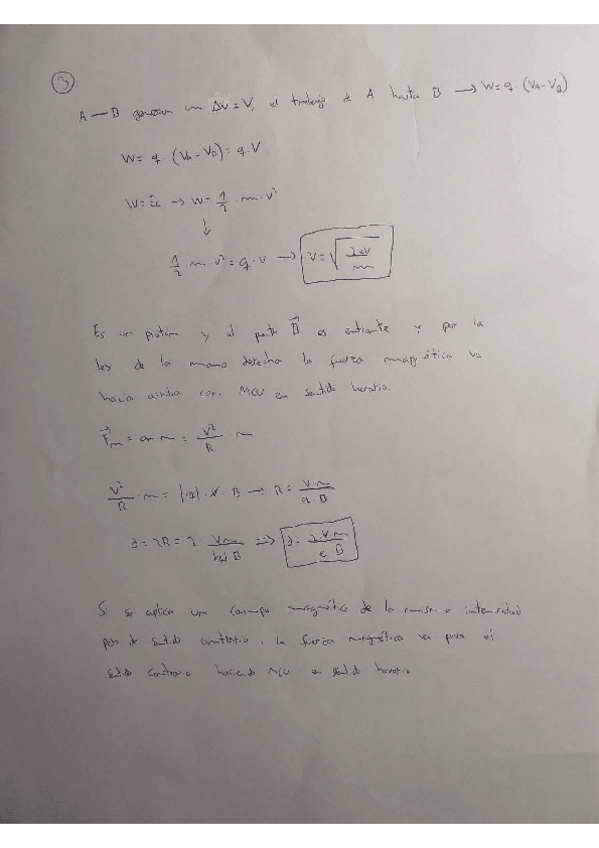 ③
A — B generan un ΔV = V, el trabajo de A hasta B → W = q · (V_A - V_B)
W = q · (V_A - V_B) = q · V
W = Ec → W = 1/2 · m · v²
↓
1/2 m · v² = q · v → V = √(2eV/m)
Es un protón y el B⃗ es entrante y por la
ley de la mano derecha la fuerza magnética va
hacia arriba con MCU en sentido horario.
F⃗m = an m = v²/R m
v²/R · m = |q| · v · B → R = V·m/q·B
d = 2R = 2 · Vm/|q|B ⇒ d = 2·V·m/e·B
Si se aplica un campo magnético de la misma intensidad
pero de sentido contrario, la fuerza magnética va para el
sentido contrario haciendo MCU en sentido horario